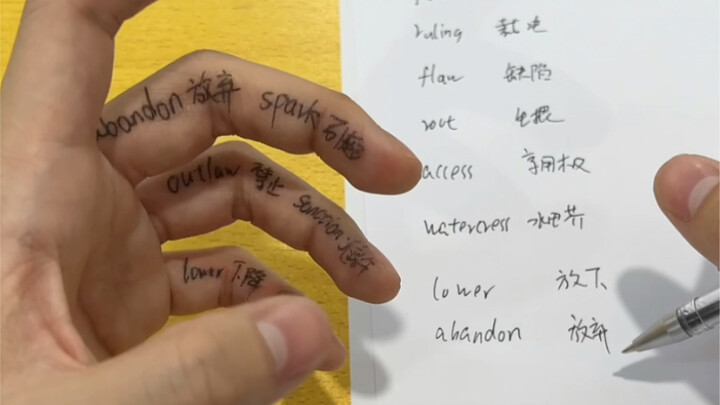 abandon 放弃
spark 引起
outlaw 禁止
sanction
lower 下降
ruling 裁定
flaw 缺陷
root 生根
access 享用权
watercress 水田芥
lower 放下
abandon 放弃